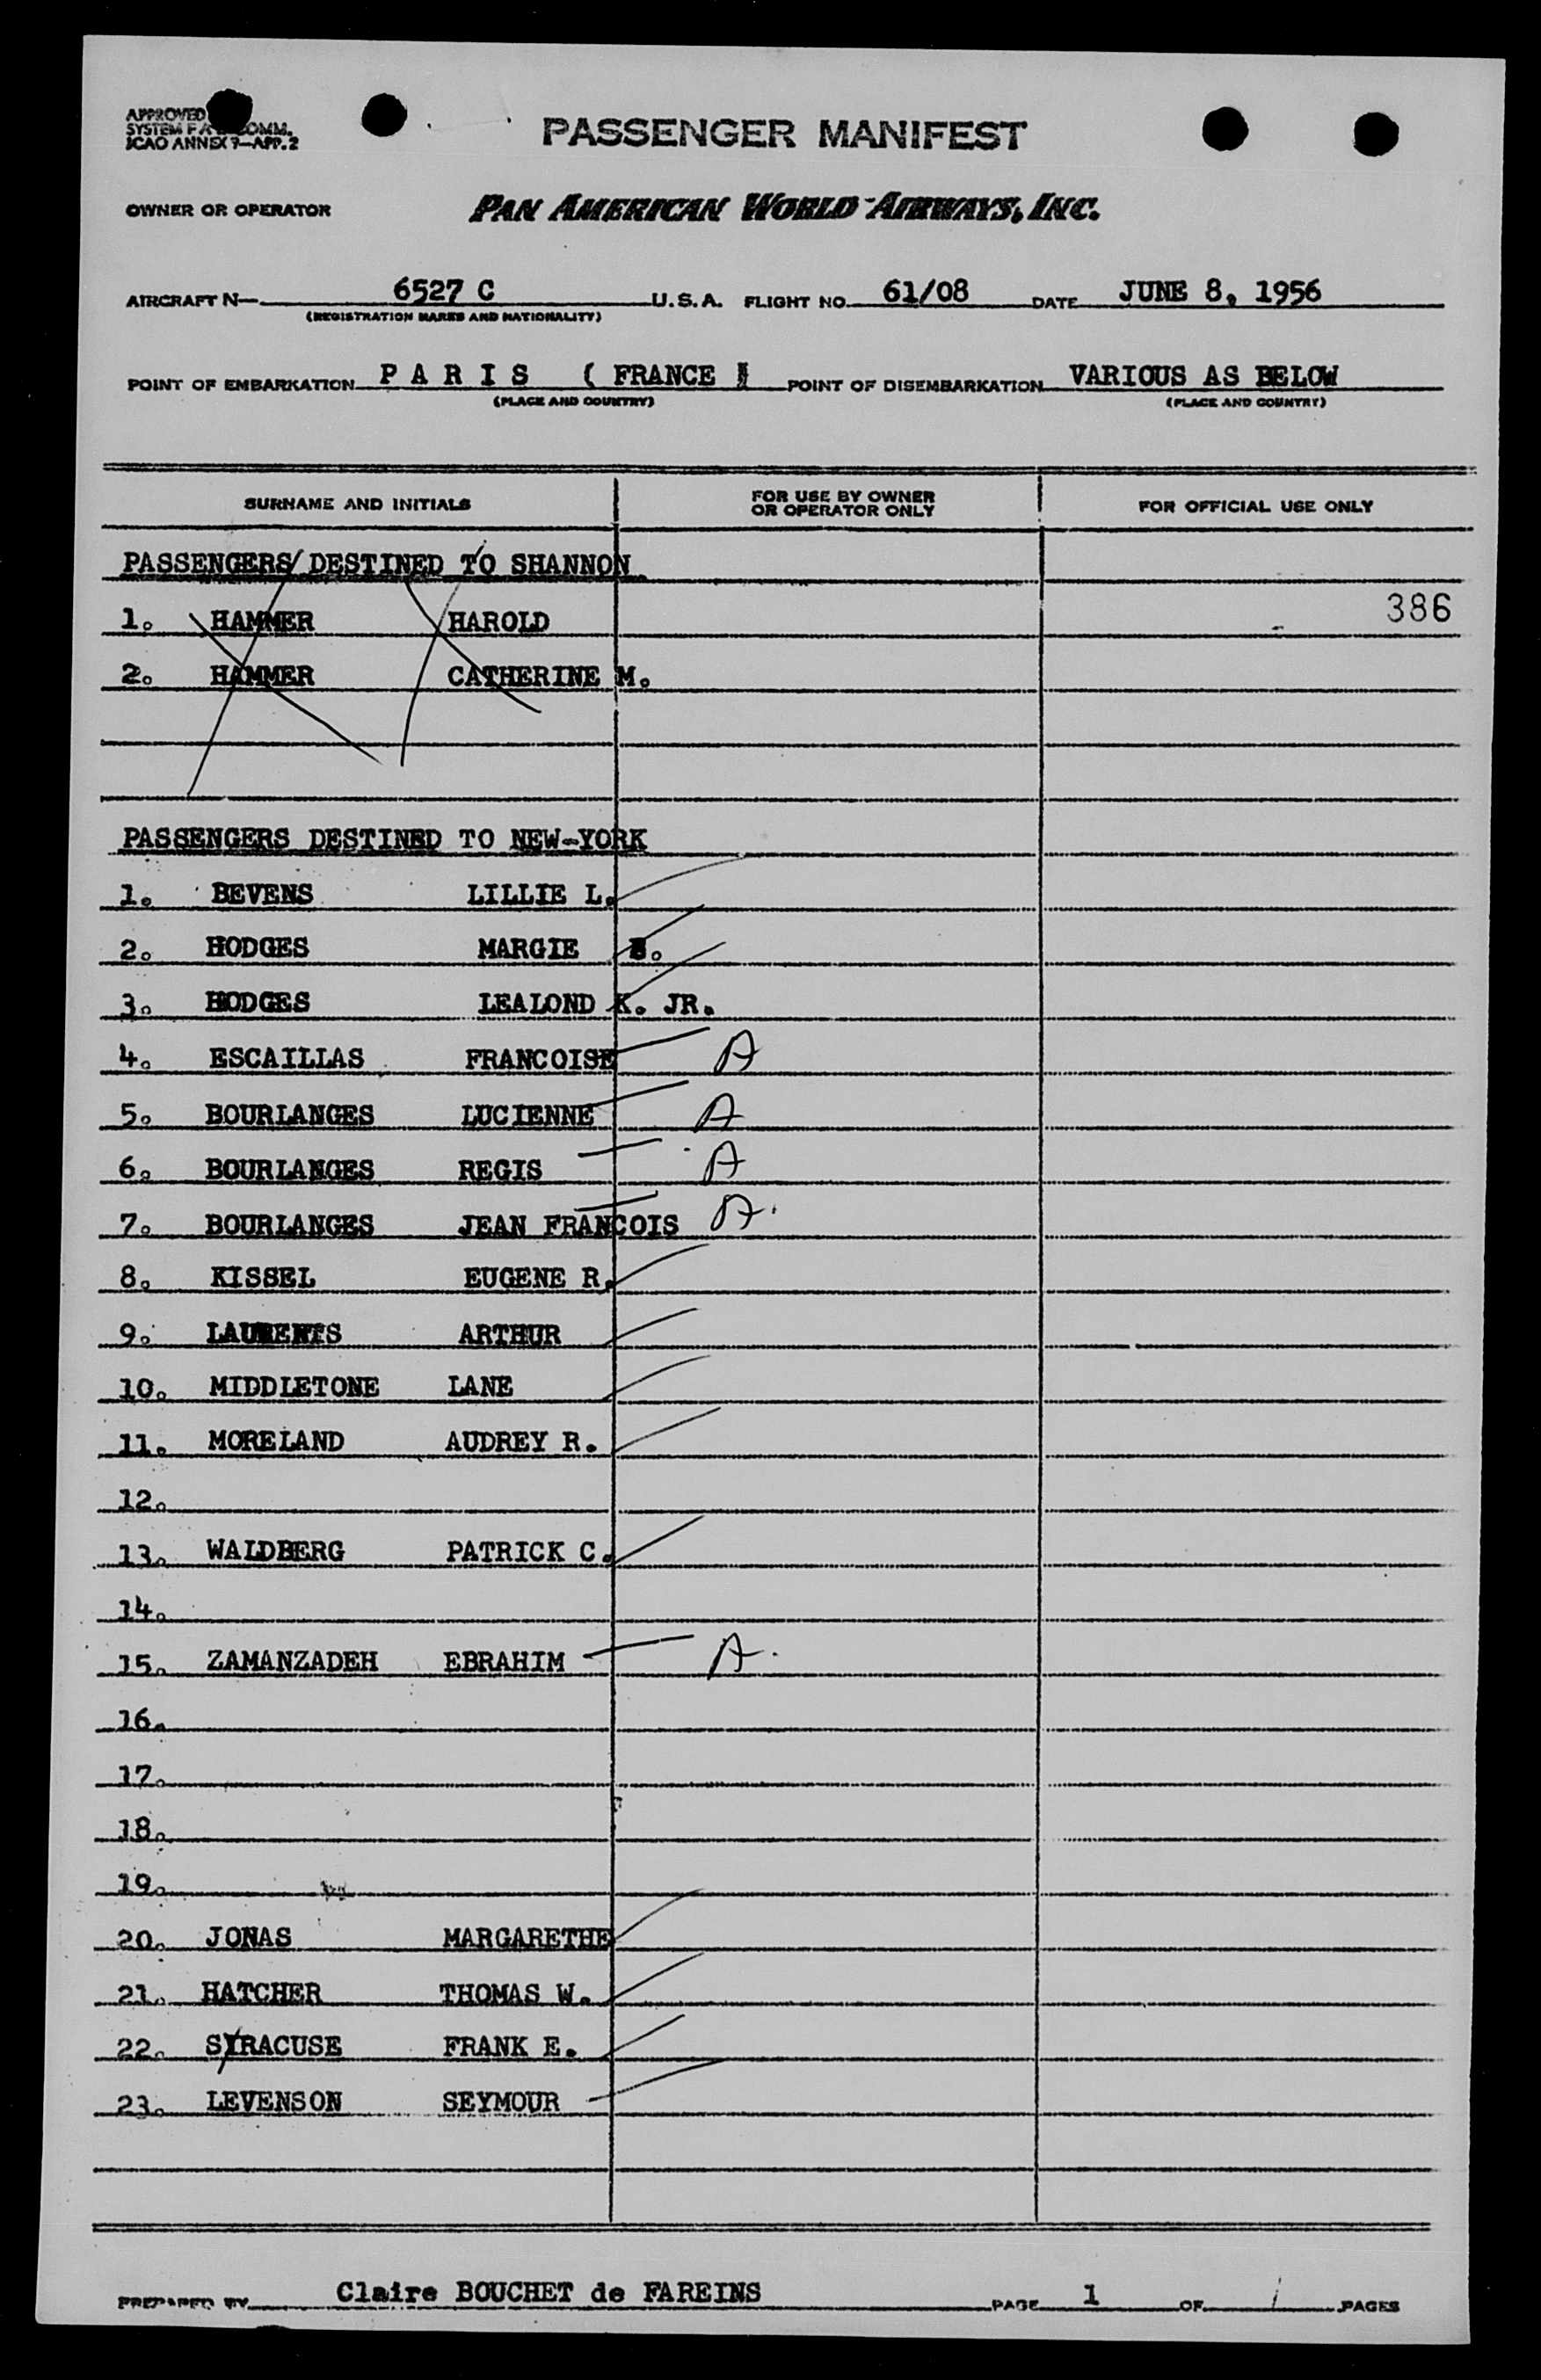 APPROVED
SYSTEM COMM.
ICAO ANNEX 9—APP. 2
PASSENGER MANIFEST
OWNER OR OPERATOR PAN AMERICAN WORLD AIRWAYS, INC.
AIRCRAFT N— 6527 C U.S.A. FLIGHT NO. 61/08 DATE JUNE 8, 1956
(REGISTRATION MARKS AND NATIONALITY)
POINT OF EMBARKATION P A R I S ( FRANCE POINT OF DISEMBARKATION VARIOUS AS BELOW
(PLACE AND COUNTRY) (PLACE AND COUNTRY)
SURNAME AND INITIALS FOR USE BY OWNER OR OPERATOR ONLY FOR OFFICIAL USE ONLY
PASSENGERS DESTINED TO SHANNON
1. HAMMER HAROLD 386
2. HAMMER CATHERINE M.
PASSENGERS DESTINED TO NEW-YORK
1. BEVENS LILLIE L.
2. HODGES MARGIE
3. HODGES LEALOND K. JR.
4. ESCAILLAS FRANCOISE A
5. BOURLANGES LUCIENNE A
6. BOURLANGES REGIS A
7. BOURLANGES JEAN FRANCOIS A.
8. KISSEL EUGENE R.
9. LAURENTS ARTHUR
10. MIDDLETONE LANE
11. MORELAND AUDREY R.
12.
13. WALDBERG PATRICK C.
14.
15. ZAMANZADEH EBRAHIM A.
16.
17.
18.
19.
20. JONAS MARGARETHE
21. HATCHER THOMAS W.
22. SYRACUSE FRANK E.
23. LEVENSON SEYMOUR
PREPARED BY Claire BOUCHET de FAREINS PAGE 1 OF 1 PAGES